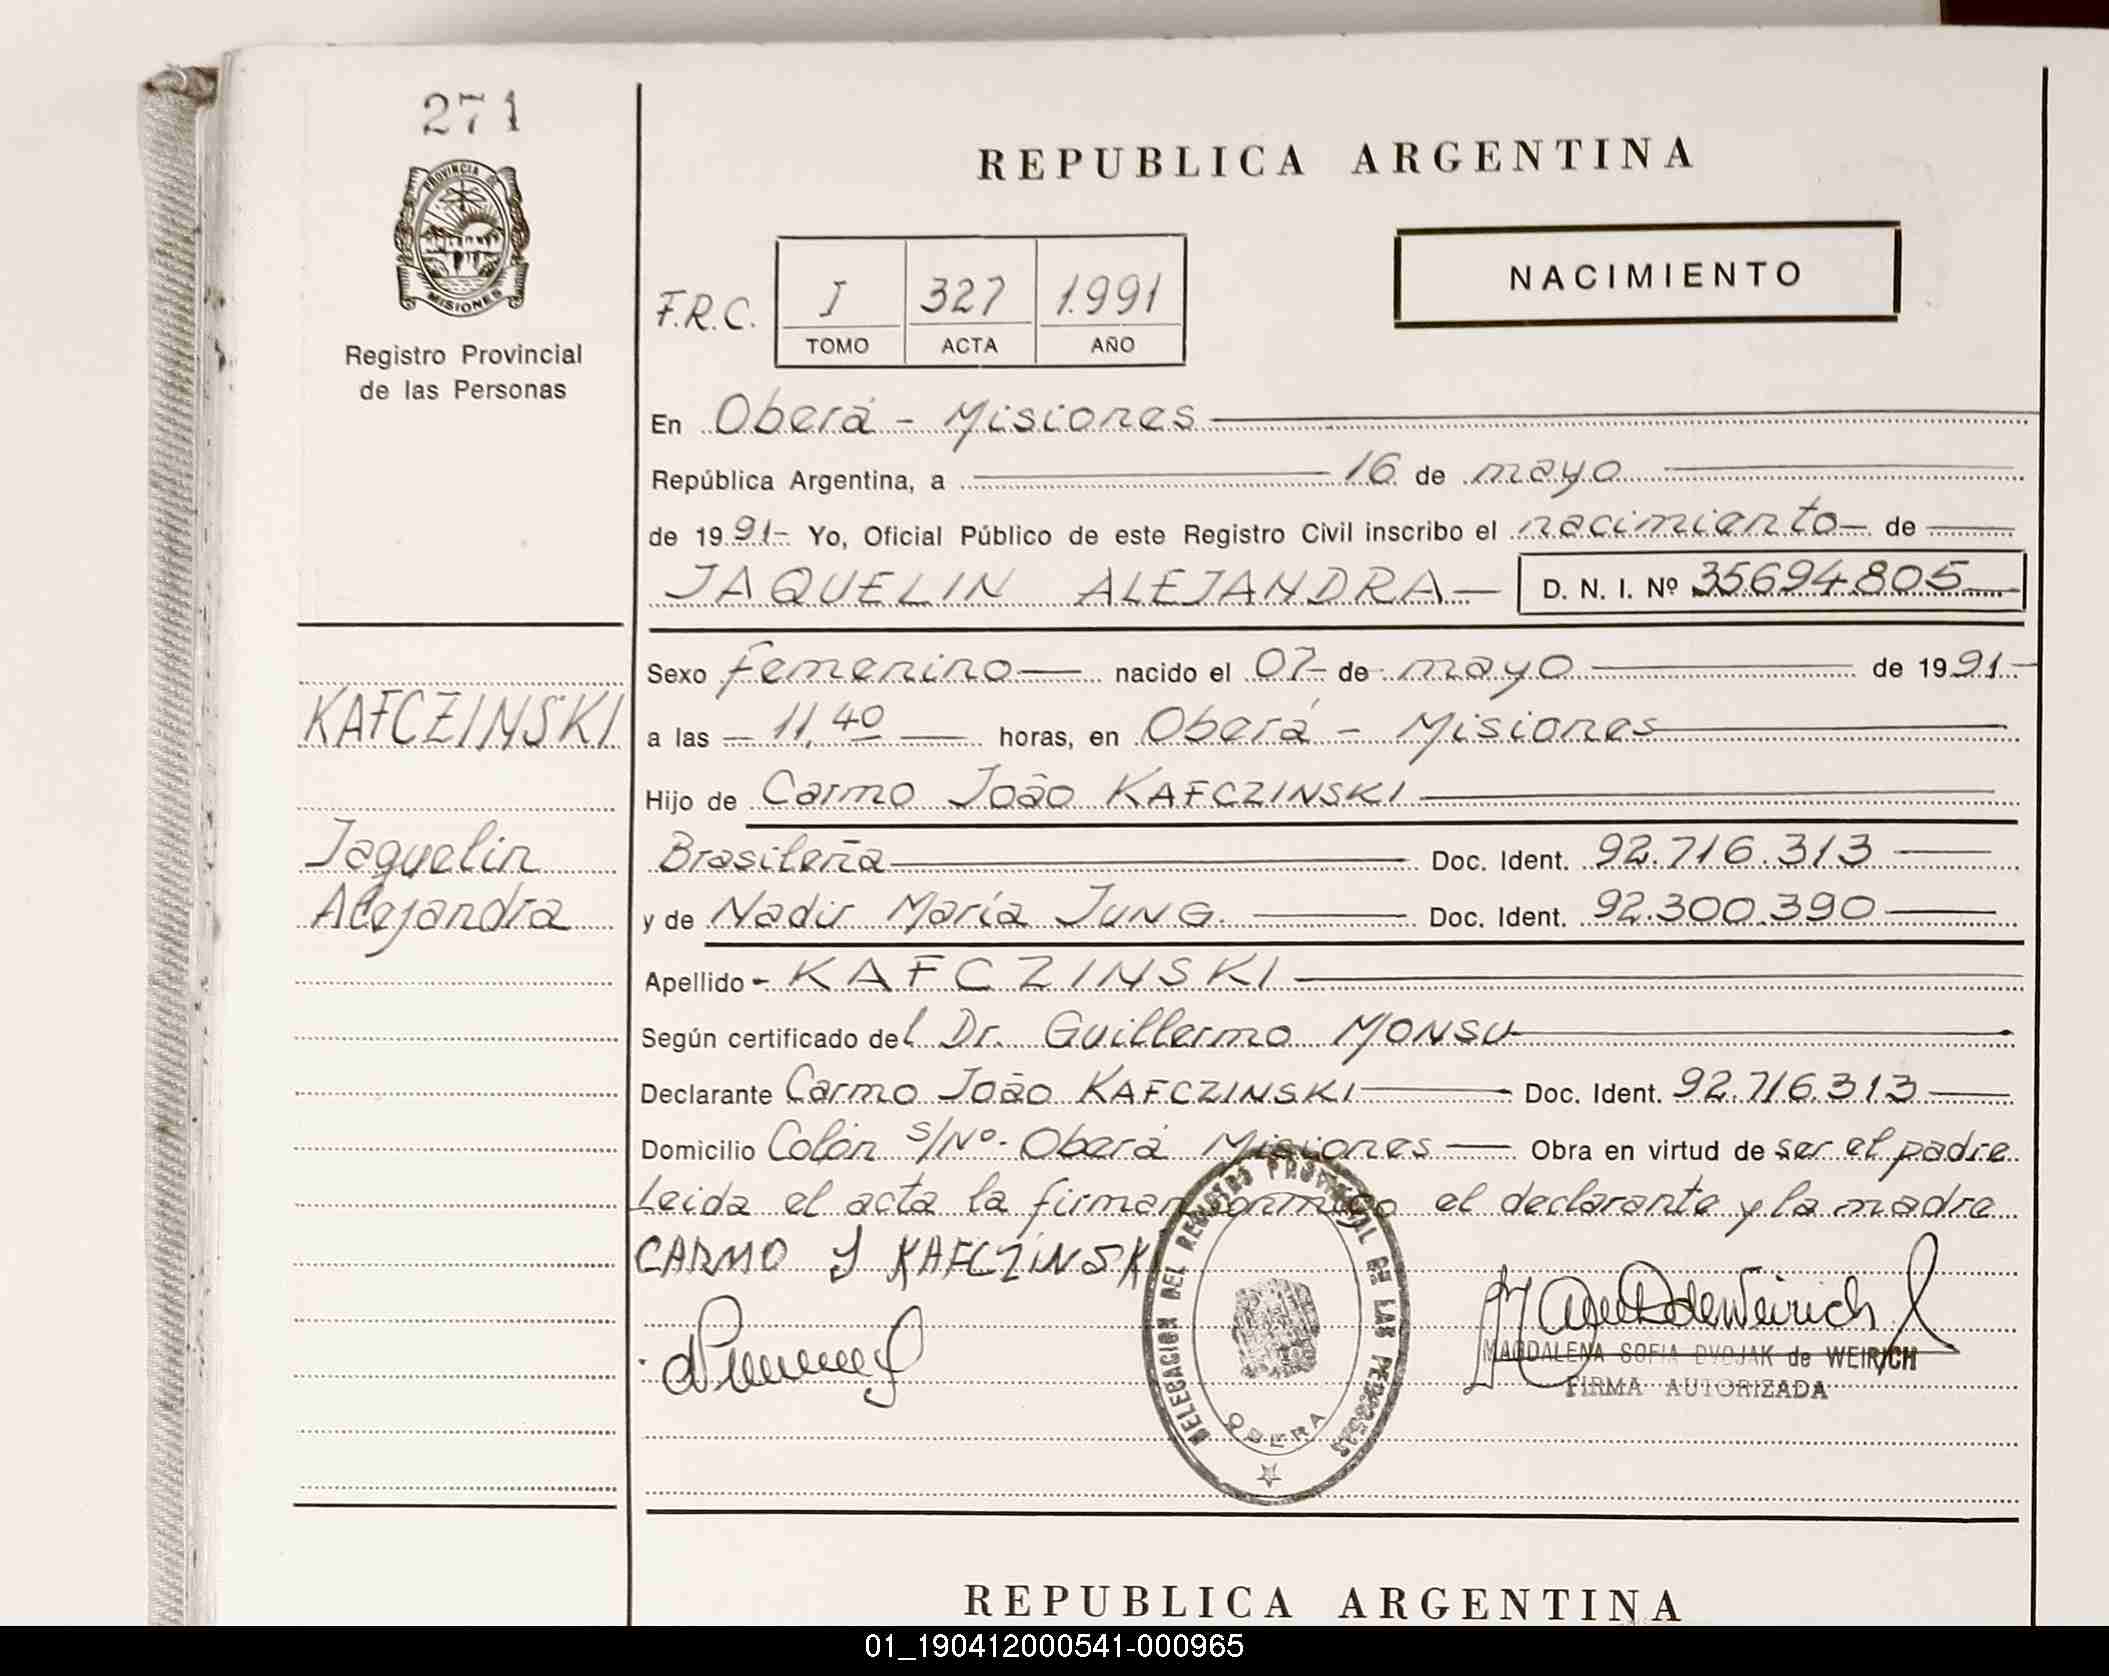 271
PROVINCIA DE
MISIONES
Registro Provincial
de las Personas
KAFCZINSKI
Jaquelin
Alejandra
REPUBLICA ARGENTINA
NACIMIENTO
F.R.C. I 327 1.991
TOMO ACTA AÑO
En Oberá - Misiones
República Argentina, a 16 de mayo
de 1991- Yo, Oficial Público de este Registro Civil inscribo el nacimiento de
JAQUELIN ALEJANDRA D. N. I. Nº 35.694.805
Sexo femenino nacido el 07 de mayo de 1991-
a las 11,40 horas, en Oberá - Misiones
Hijo de Carmo João KAFCZINSKI
Brasileña Doc. Ident. 92.716.313
y de Nadir María JUNG. Doc. Ident. 92.300.390
Apellido - KAFCZINSKI
Según certificado del Dr. Guillermo MONSU
Declarante Carmo João KAFCZINSKI Doc. Ident. 92.716.313
Domicilio Colón s/Nº- Oberá Misiones Obra en virtud de ser el padre
Leida el acta la firman conmigo el declarante y la madre
CARMO J KAFCZINSKI
DELEGACION DEL REGISTRO PROVINCIAL DE LAS PERSONAS
OBERA
MAGDALENA SOFIA DVOJAK de WEIRICH
FIRMA AUTORIZADA
REPUBLICA ARGENTINA
01_190412000541-000965